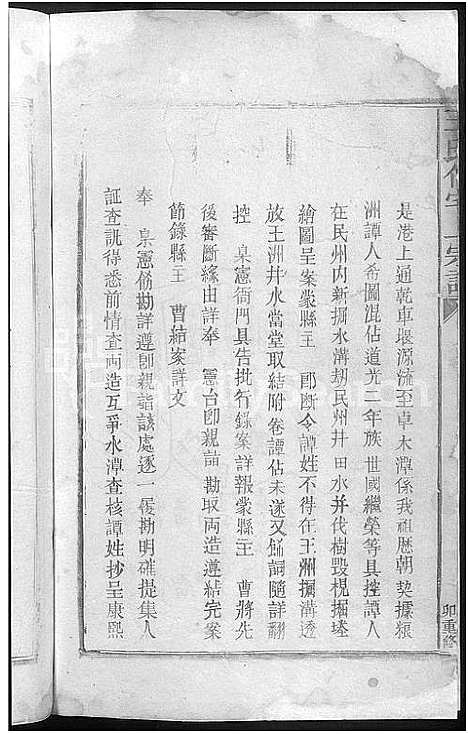 是港上通乾車堰源流至卓木潭係我祖歷朝契據粮
洲譚人希圖混佔道光二年族世國繼榮等具控譚人
在民州內新掘水溝刼民州井田水并伐樹毀梘掘𡋾
繪圖呈案蒙縣主 郎斷令譚姓不得在王洲掘溝透
放王洲井水當堂取結附卷譚佔未遂又餙詞隨詳翻
控 臬憲衙門具告批行錄案詳報蒙縣主 曹將先
後審斷緣由詳奉 憲台卽親詣勘取両造遵結完案
節錄縣主 曹結案詳文
奉 臬憲飭勘詳遵卽親詣該處逐一履勘明確提集人
証查訊得悉前情查両造互爭水潭查核譚姓抄呈康熙
重修